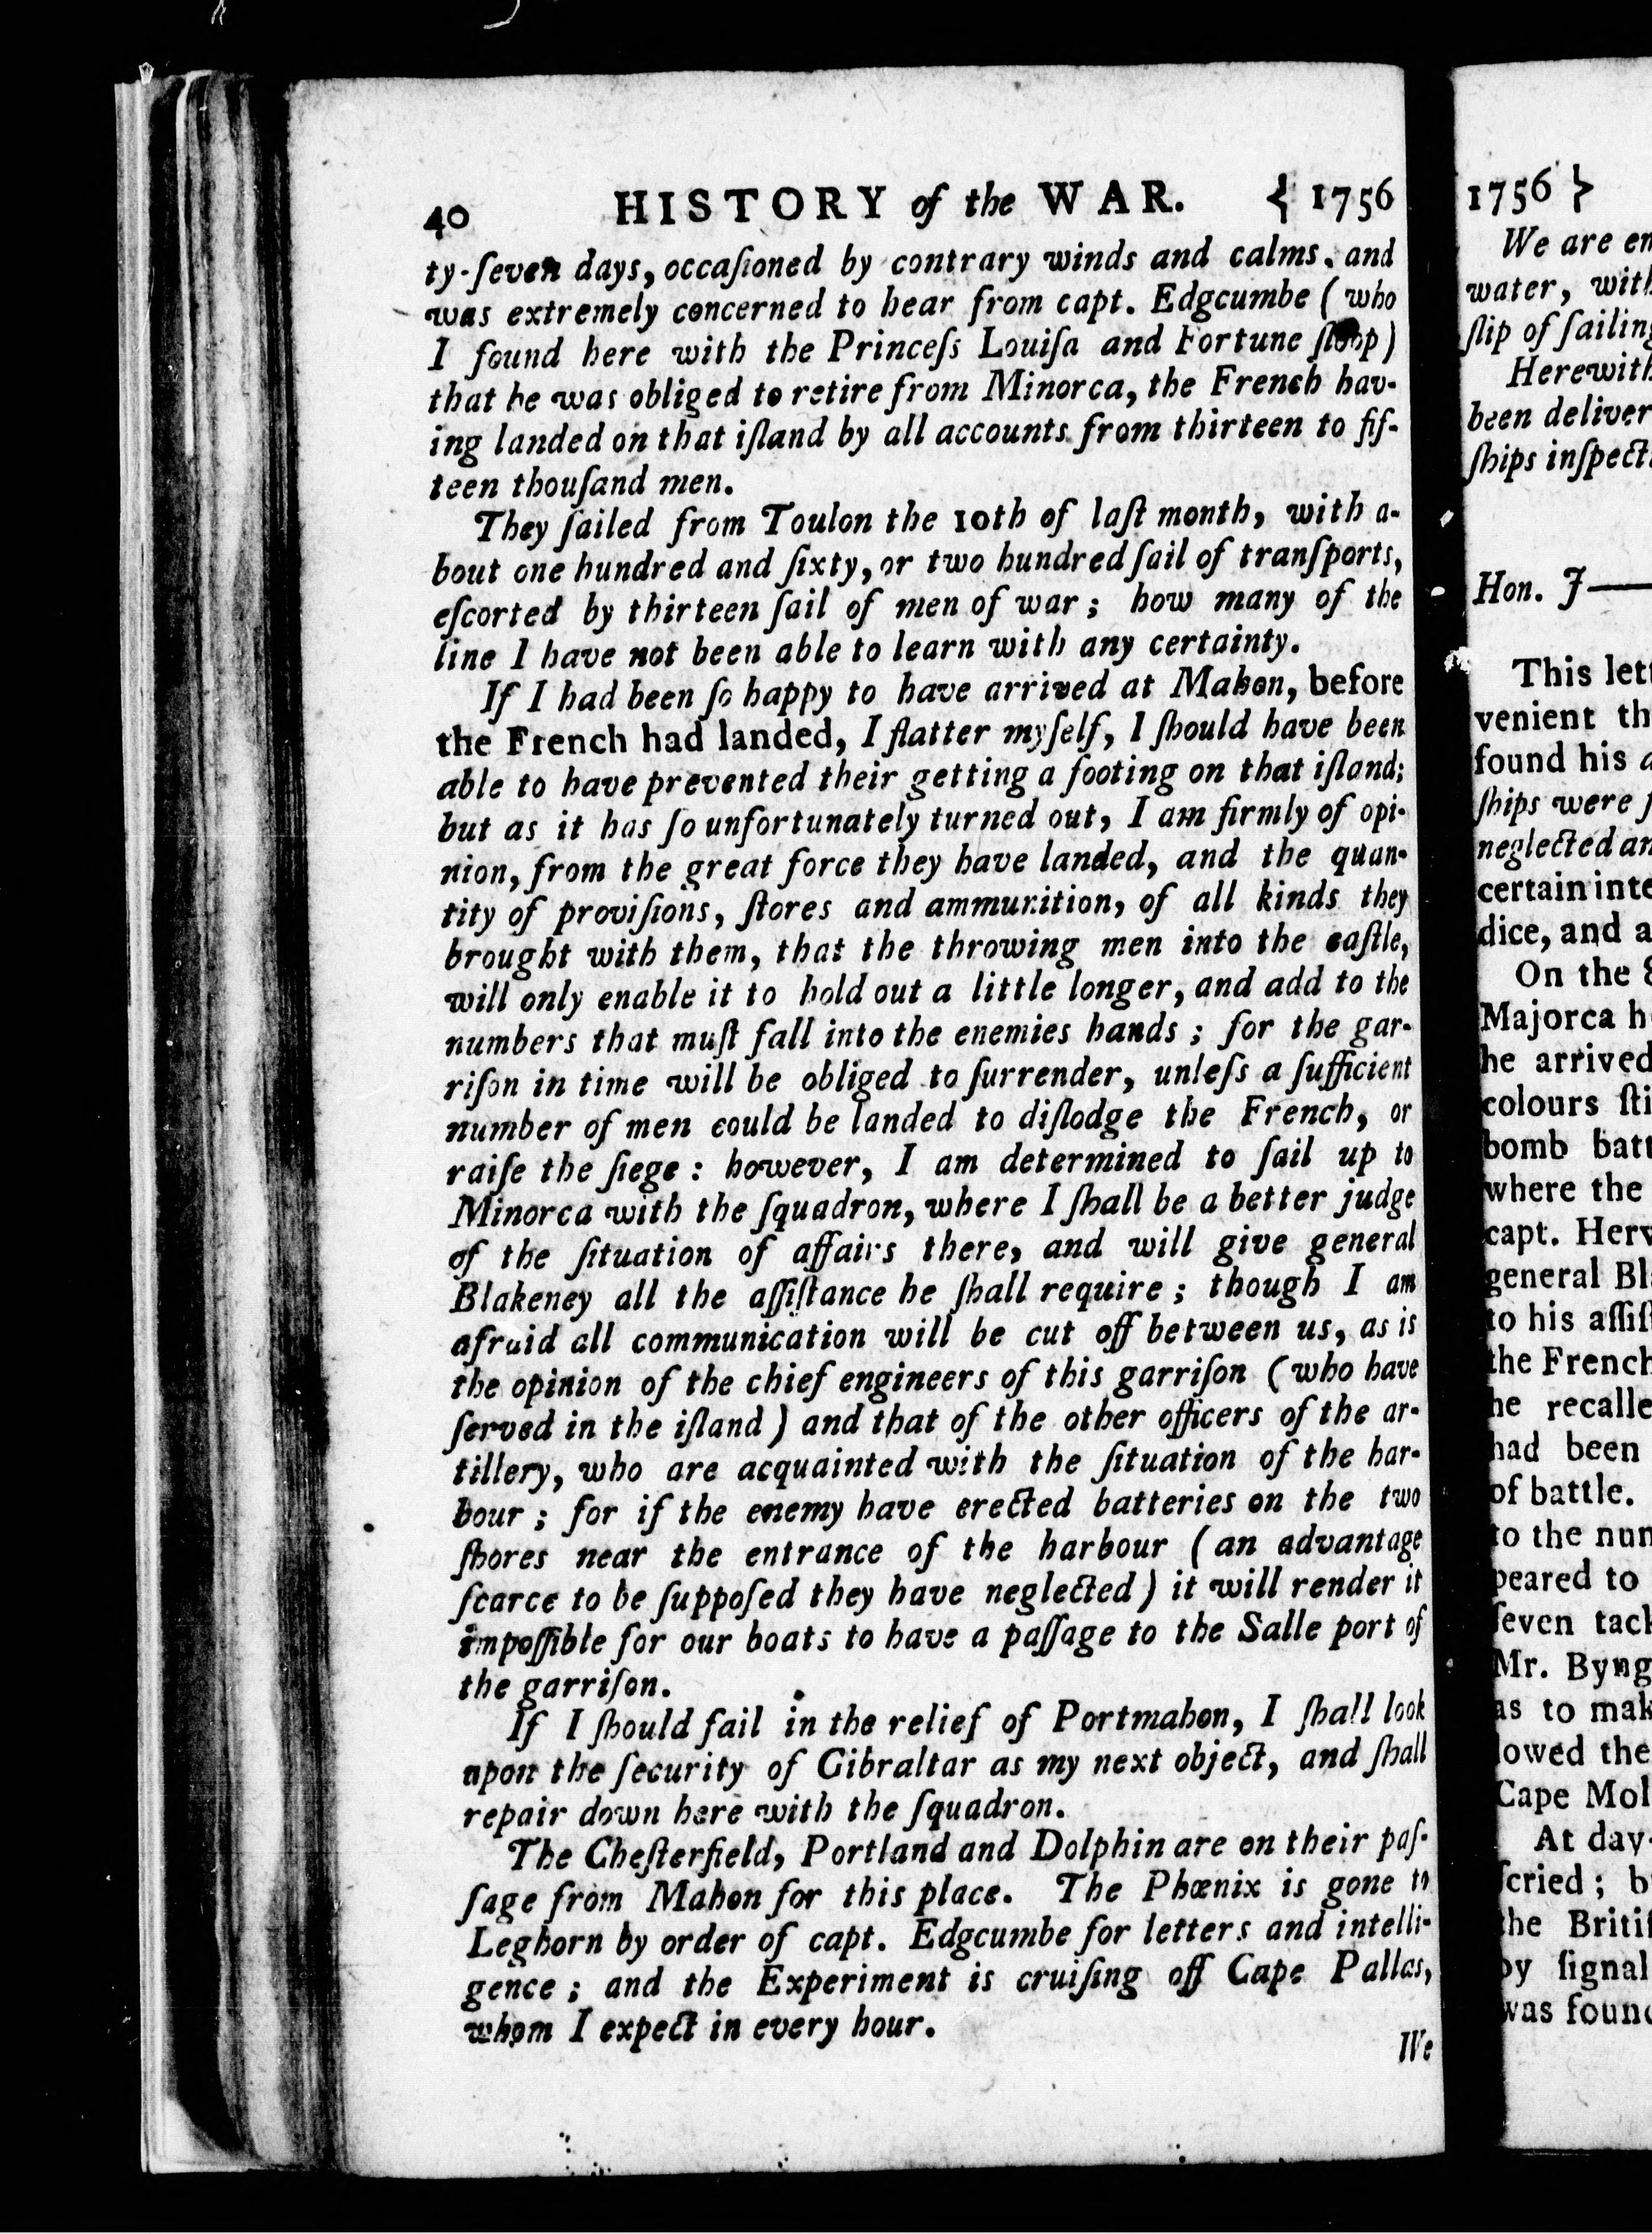 40 HISTORY of the WAR. { 1756
ty-ſeven days, occaſioned by contrary winds and calms, and
was extremely concerned to hear from capt. Edgcumbe (who
I found here with the Princeſs Louiſa and Fortune ſloop)
that he was obliged to retire from Minorca, the French hav-
ing landed on that iſland by all accounts from thirteen to fif-
teen thouſand men.
They ſailed from Toulon the 10th of laſt month, with a-
bout one hundred and ſixty, or two hundred ſail of tranſports,
eſcorted by thirteen ſail of men of war; how many of the
line I have not been able to learn with any certainty.
If I had been ſo happy to have arrived at Mahon, before
the French had landed, I flatter myſelf, I ſhould have been
able to have prevented their getting a footing on that iſland;
but as it has ſo unfortunately turned out, I am firmly of opi-
nion, from the great force they have landed, and the quan-
tity of proviſions, ſtores and ammunition, of all kinds they
brought with them, that the throwing men into the caſtle,
will only enable it to hold out a little longer, and add to the
numbers that muſt fall into the enemies hands; for the gar-
riſon in time will be obliged to ſurrender, unleſs a ſufficient
number of men could be landed to diſlodge the French, or
raiſe the ſiege: however, I am determined to ſail up to
Minorca with the ſquadron, where I ſhall be a better judge
of the ſituation of affairs there, and will give general
Blakeney all the aſſiſtance he ſhall require; though I am
afraid all communication will be cut off between us, as is
the opinion of the chief engineers of this garriſon (who have
ſerved in the iſland) and that of the other officers of the ar-
tillery, who are acquainted with the ſituation of the har-
bour; for if the enemy have erected batteries on the two
ſhores near the entrance of the harbour (an advantage
ſcarce to be ſuppoſed they have neglected) it will render it
impoſſible for our boats to have a paſſage to the Salle port of
the garriſon.
If I ſhould fail in the relief of Portmahon, I ſhall look
upon the ſecurity of Gibraltar as my next object, and ſhall
repair down here with the ſquadron.
The Cheſterfield, Portland and Dolphin are on their paſ-
ſage from Mahon for this place. The Phœnix is gone to
Leghorn by order of capt. Edgcumbe for letters and intelli-
gence; and the Experiment is cruiſing off Cape Pallas,
whom I expect in every hour.
We
1756 }
We are
water,
ſlip of
Herewith
been
ſhips
Hon. J—
This
venient
found his
ſhips were
neglected
certain
dice, and
On the
Majorca
he arrived
colours
bomb
where the
capt.
general
to his
the French
he
had been
of battle.
to the
peared to
ſeven
Mr. Byng
as to
lowed the
Cape
At
ſcried;
the
by ſignal
was